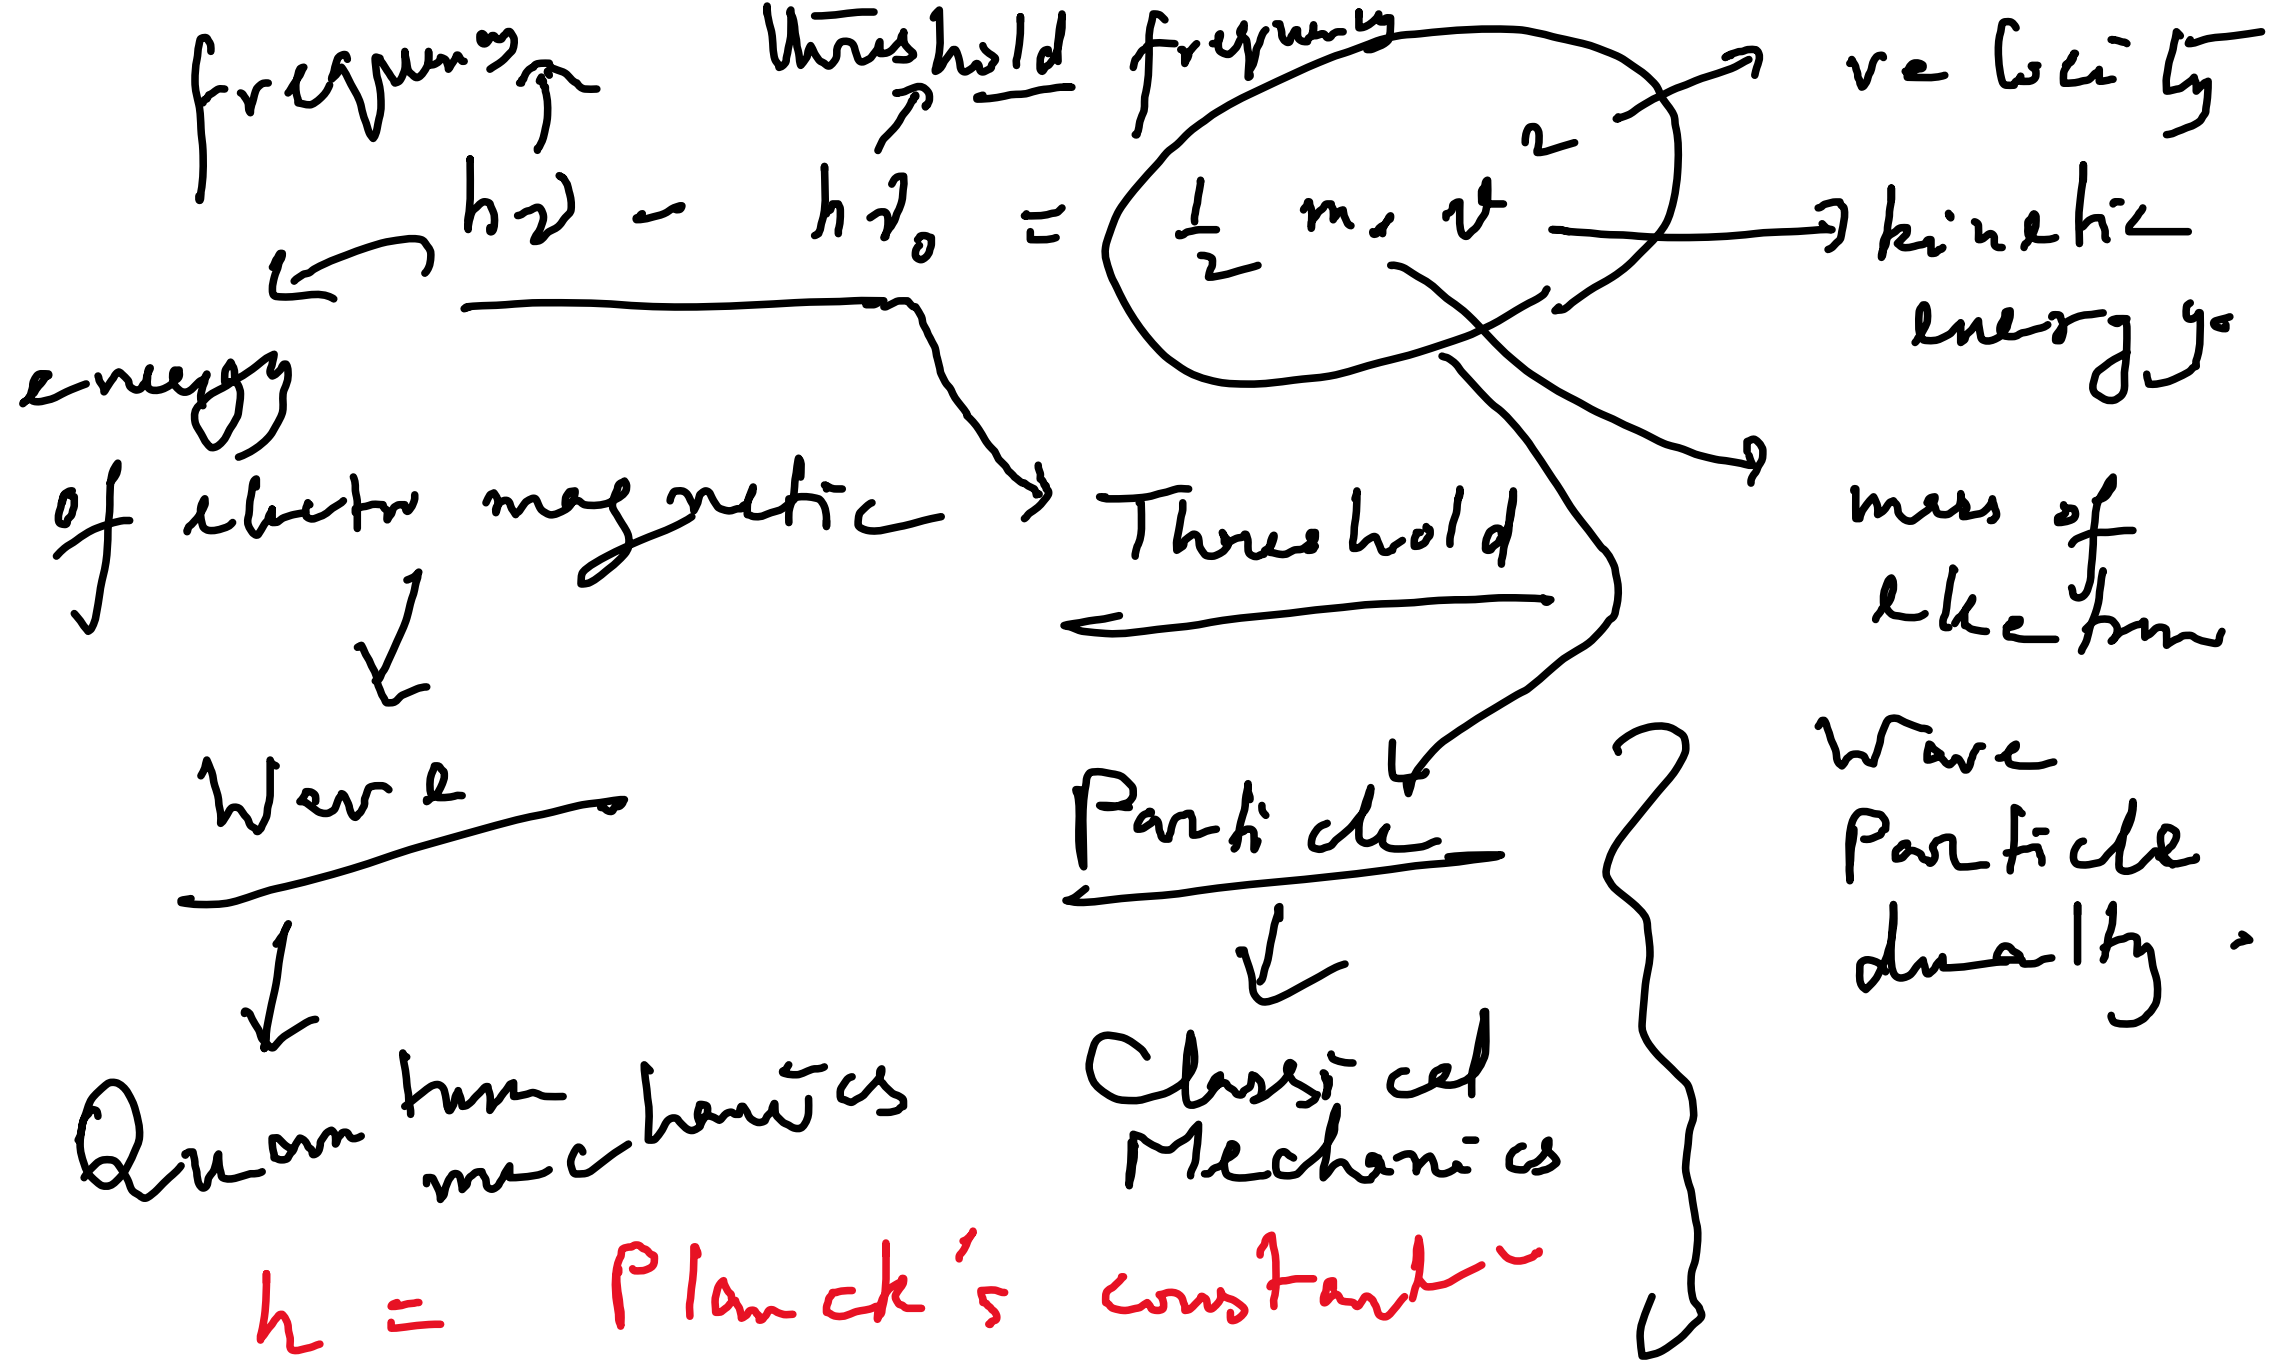 frequency threshold frequency
velocity
hν - hν₀ = 1/2 m. v²
kinetic
energy.
energy
of electro magnetic
Threshold
mass of
electron
Wave
Particle
Wave
Particle
duality.
Quantum mechanics
Classical
Mechanics
h = Planck's constant